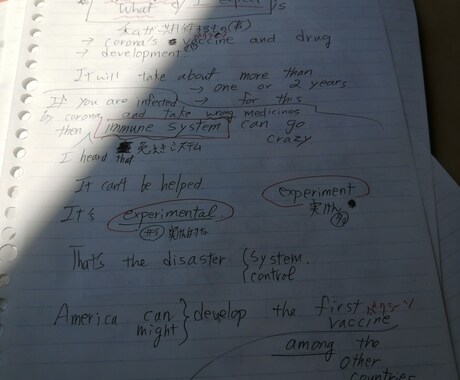 What I expect is
→ corona's vaccine and drug
→ development.
It will take about more than
→ one or 2 years
If you are infected → for this
by corona and take wrong medicines
then immune system can go
crazy
I heard that 免えきシステム
It can't be helped.
experiment
実験 名
It's experimental
形 実験的な
That's the disaster { system.
control
America can } develop the first ワクチン
might vaccine
among the
other
countries